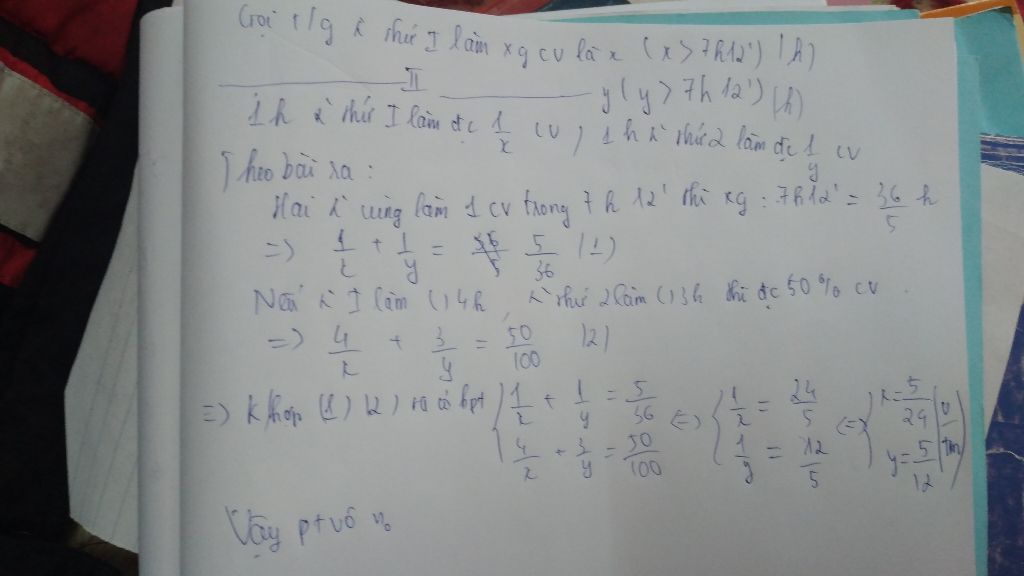 Gọi t/g λ thứ I làm xg cv là x (x > 7h12') (h)
II y (y > 7h12') (h)
1h λ thứ I làm đc 1/x cv, 1h λ thứ 2 làm đc 1/y cv
Theo bài ra:
Hai λ cùng làm 1 cv trong 7h 12' thì xg: 7h12' = 36/5 h
=> 1/x + 1/y = 5/36 (1)
Nếu λ I làm () 4h, λ thứ 2 làm () 3h thì đc 50% cv
=> 4/x + 3/y = 50/100 (2)
=> K/hợp (1) (2) ta có hpt { 1/x + 1/y = 5/36 <=> { 1/x = 24/5 <=> { x = 5/24
4/x + 3/y = 50/100 1/y = 12/5 y = 5/12 (0 tm)
Vậy pt vô n0